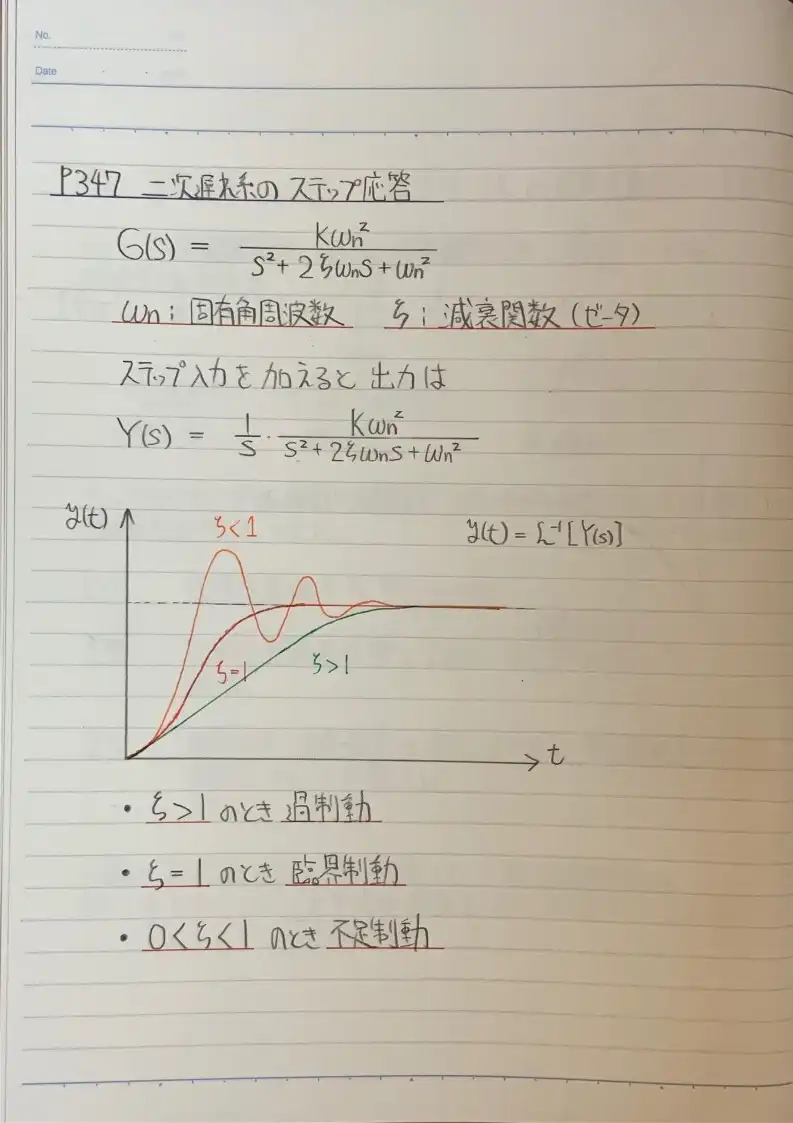 No.
Date
P347 二次遅れ系のステップ応答
G(s) = Kωn² / (s² + 2ζωns + ωn²)
ωn ; 固有角周波数 ζ ; 減衰関数 (ゼータ)
ステップ入力を加えると出力は
Y(s) = 1/s · Kωn² / (s² + 2ζωns + ωn²)
y(t) ζ<1 y(t) = L⁻¹[Y(s)]
ζ=1 ζ>1
t
・ζ>1 のとき 過制動
・ζ=1 のとき 臨界制動
・0<ζ<1 のとき 不足制動